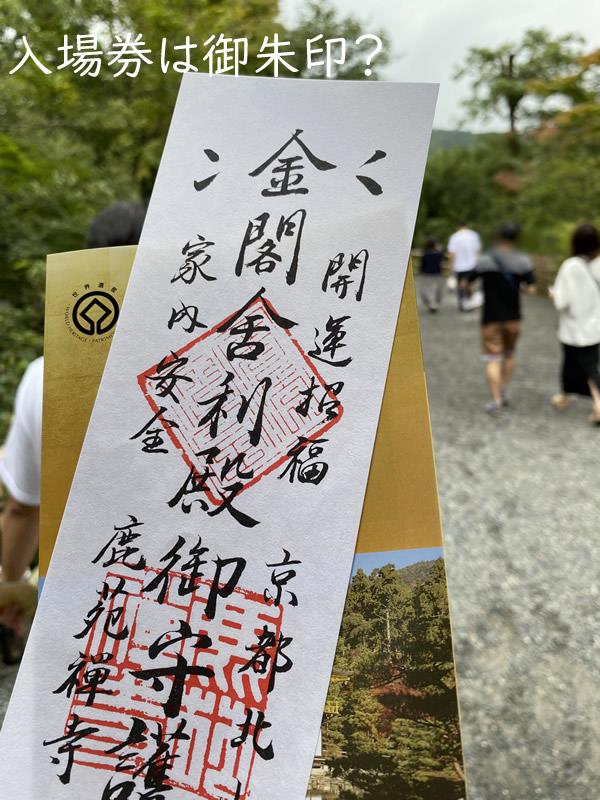 入場券は御朱印?
金閣舎利殿御守護
開運招福
家内安全
京都北
鹿苑禅寺
世界遺産
WORLD HERITAGE